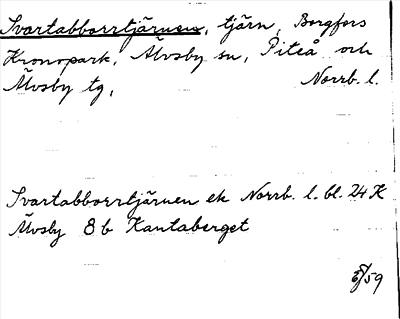 Svartabborrtjärnen, tjärn, Borgfors
Kronopark, Älvsby sn, Piteå och
Älvsby tg, Norrb. l.
Svartabborrtjärnen ek Norrb. l. bl. 24 K
Älvsby 8 b Kantaberget
59